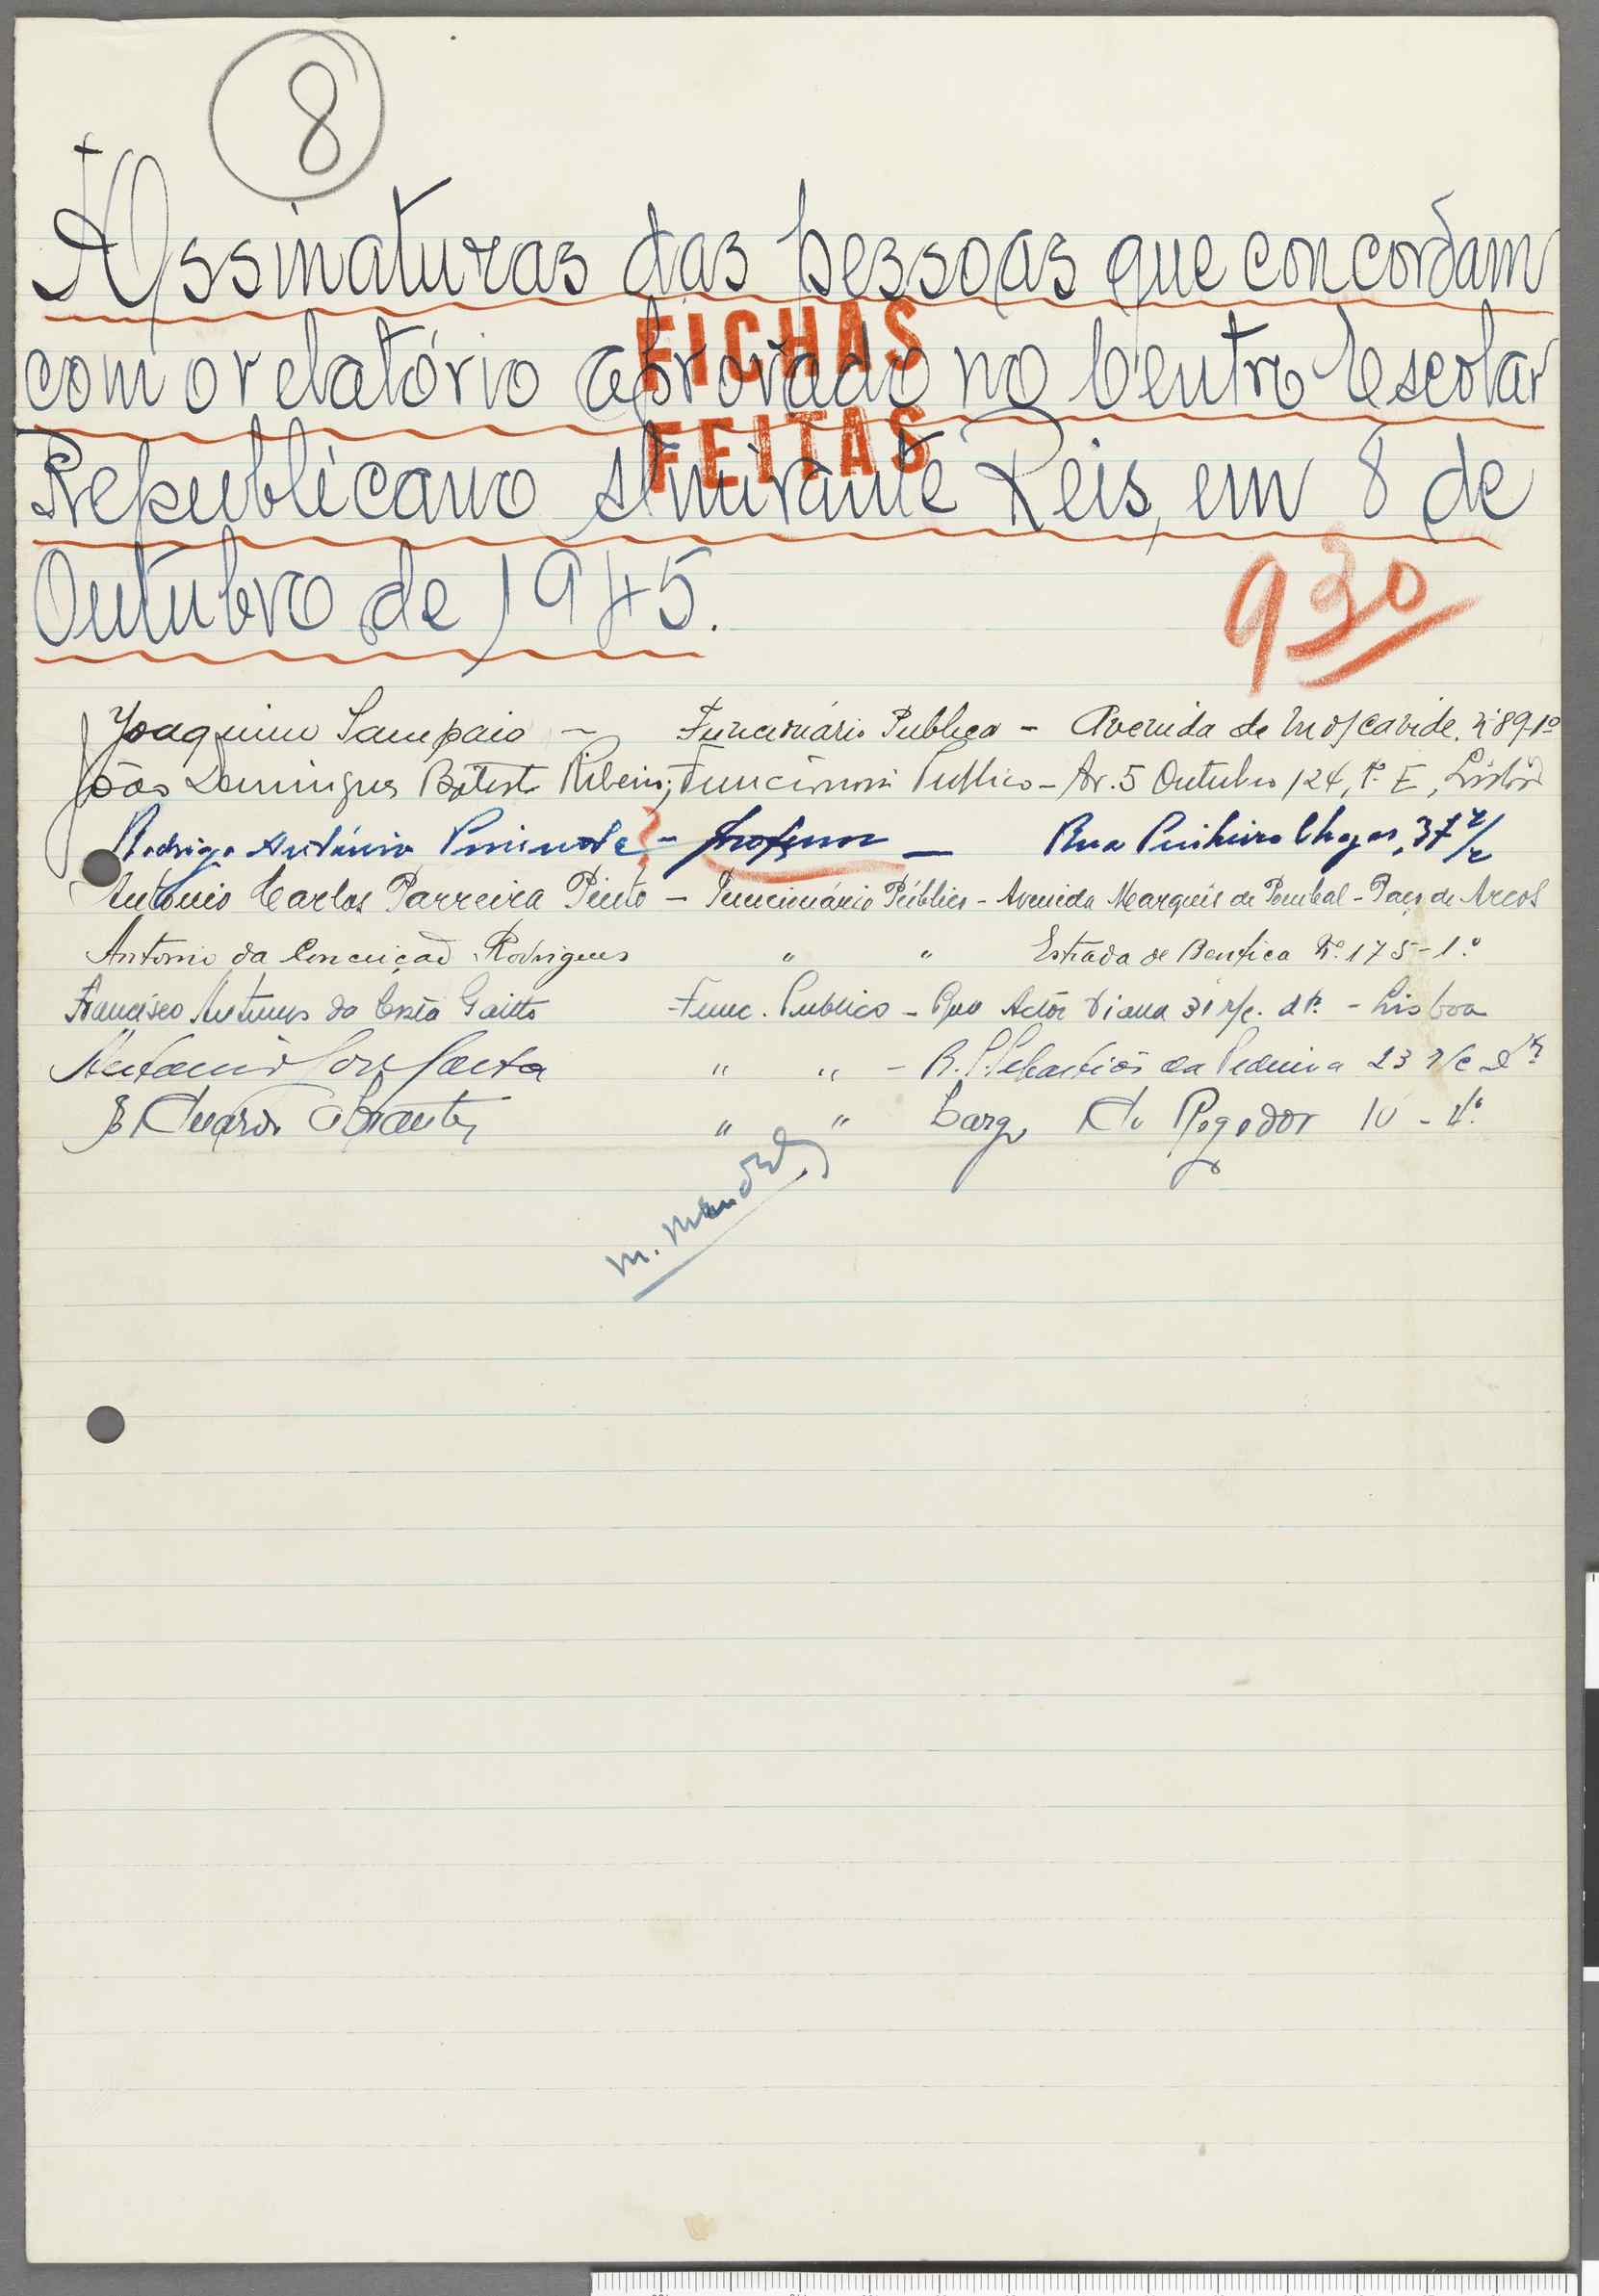 8
Assinaturas das pessoas que concordam
FICHAS
com o relatório aprovado no Centro Escolar
FEITAS
Republicano Almirante Reis, em 8 de
Outubro de 1945.
930
Joaquim Sampaio - Funcionário Publico - Avenida de Moscavide, nº 89-1º
João Domingues Batista Ribeiro, Funcionario Publico - Av. 5 Outubro 124, 1º E, Lisboa
Rodrigo António ? - professor - Rua Pinheiro Chagas, 37 r/c
António Carlos Parreira Pinto - Funcionário Público - Avenida Marquês de Pombal - Paço de Arcos
Antonio da Conceição Rodrigues " " Estrada de Benfica Nº 175-1º
Francisco Antunes da Costa Func. Publico - Rua Actor Viana 31 r/c. dtº - Lisboa
Antonio " " - R. S. Sebastião da Pedreira 23 r/c Dtº
Eduardo Abrantes " " Largo do Regedor 10 - 4º
M. Mendes